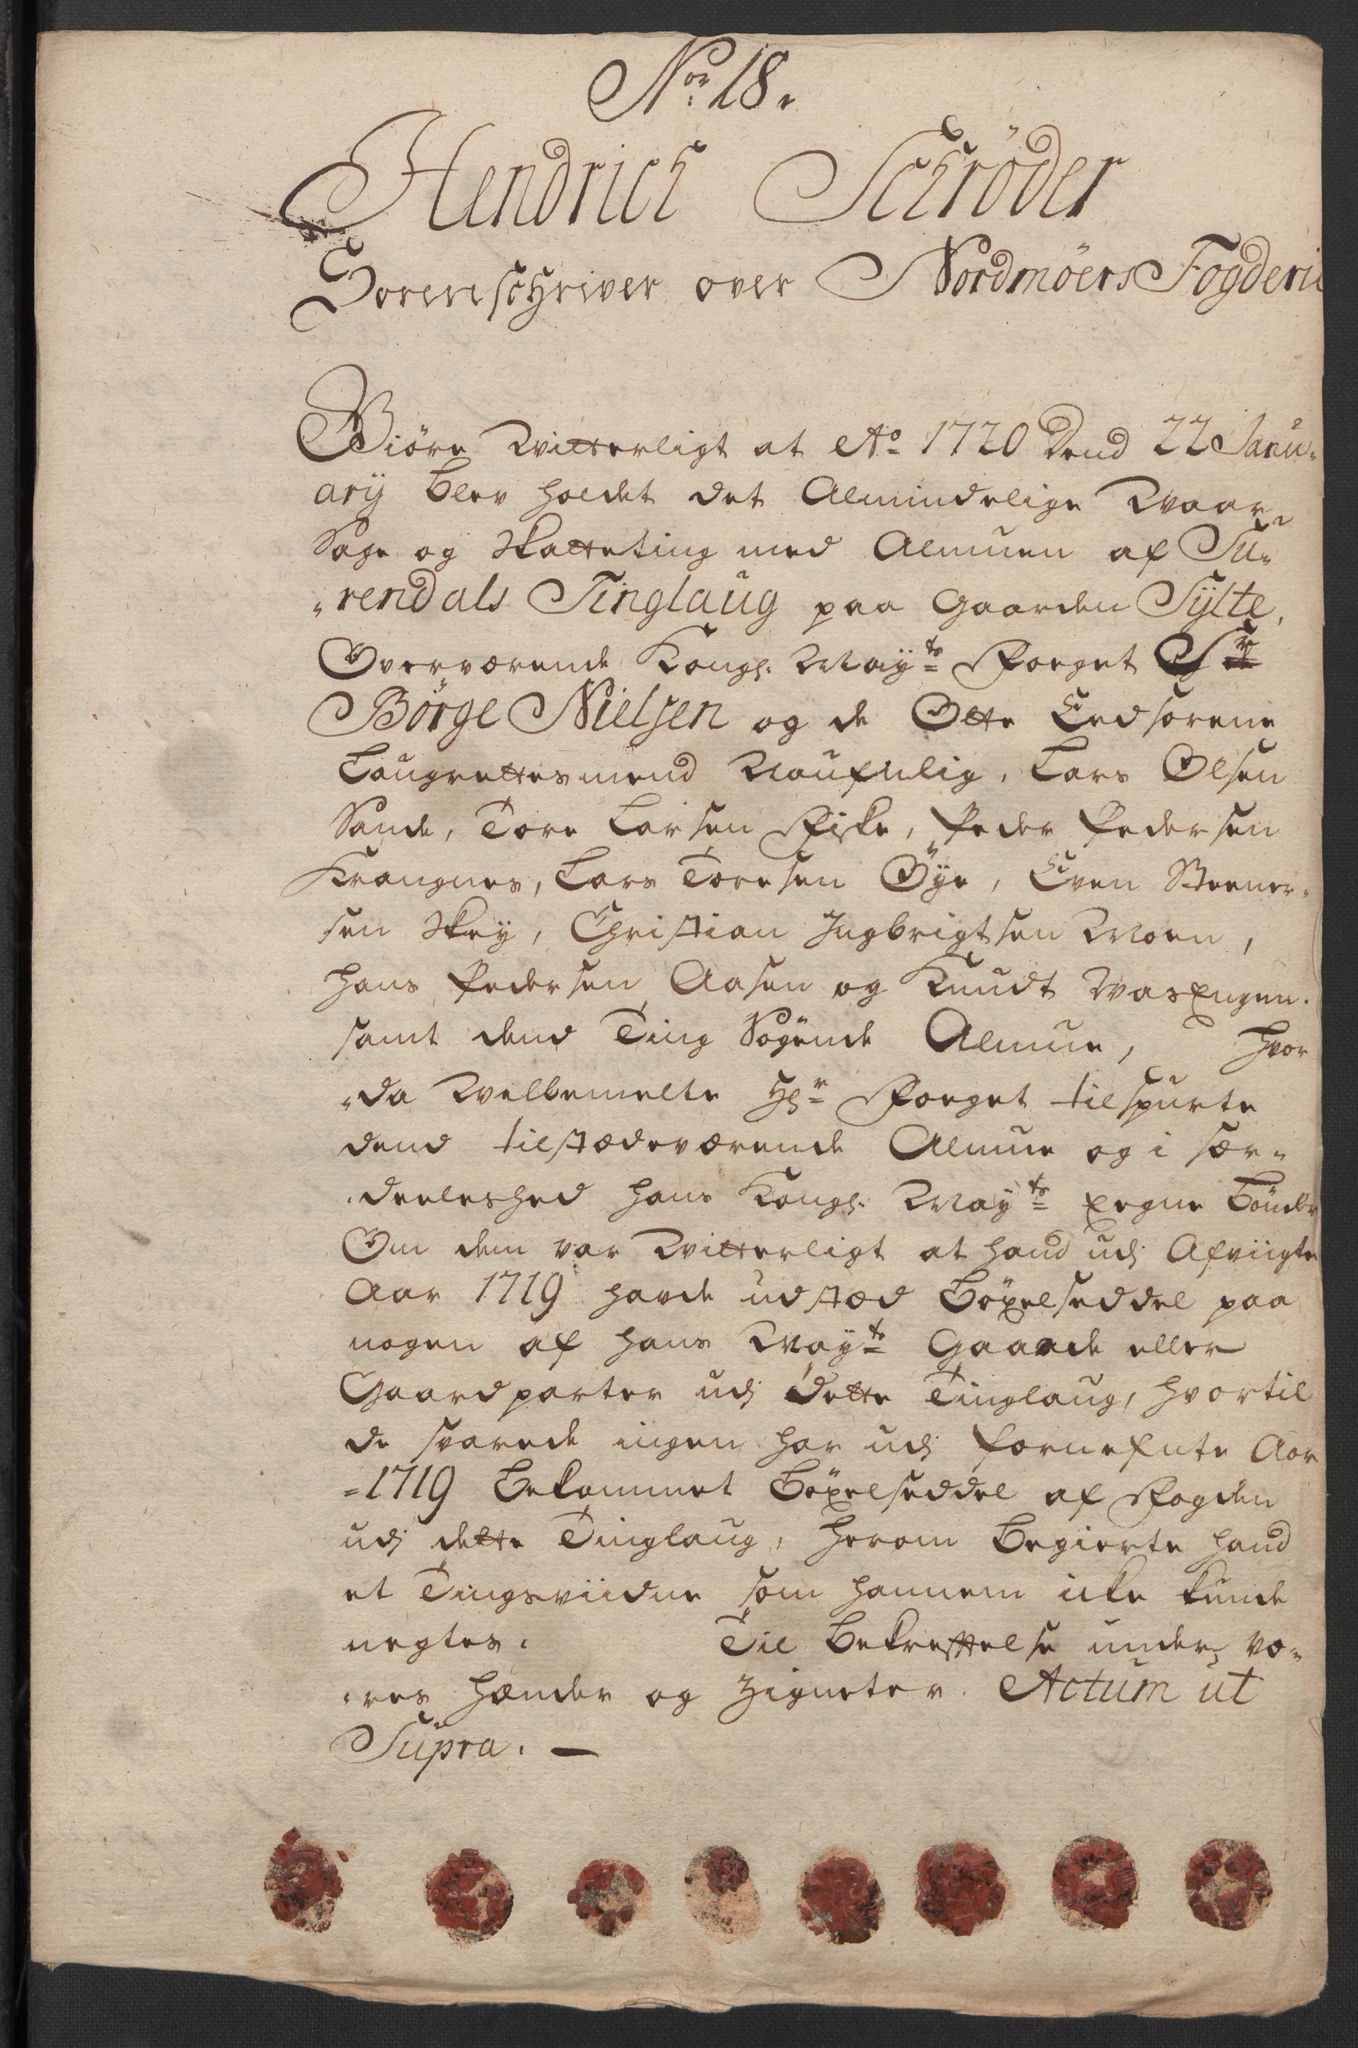 No: 18.
Hendrich Schrøder
Sorenschriver over Nordmøers Fogderie
Giøre Witterligt at Ao 1720 Dend 22 Janu-
ary blev holdet det Almindelige Waar
Sage og Skatteting med Almuen af Su-
rendals Tinglaug paa Gaarden Sylte,
Overværende Kongl: Mayts Foeget Sr
Børge Nielsen og de Otte Eedsorene
Laugrettesmend Naufnlig, Lars Olsen
Sande, Tore Larsen Fiske, Peder Pedersen
Krangnes, Lars Toresen Øye, Even Steener-
sen Skey, Christian Ingbrigtsen Moen,
Hans Pedersen Aasen og Knudt Wasengen.
samt dend Ting Søgende Almue, hvor
da Welbemelte Hr Foeget tilspurte
dend tilstædeværende Almue og i sær-
deeleshed hans Kongl: Mayts Eegne Bønder
Om dem var Witterligt at hand udj Afvigte
Aar 1719 havde udstæd Bøxelseddel paa
nogen af hans Mayts Gaarde eller
Gaardparter udj dette Tinglaug, hvortil
de svarede ingen har udj fornefnte Aar
1719 bekommet Bøxelseddel af Fogden
udj dette Tinglaug, herom begierte hand
et Tingsviidne som hannem icke kunde
negtes. Til Bekreftelse under vo-
res hænder og Zigneter. Actum ut
Supra. —